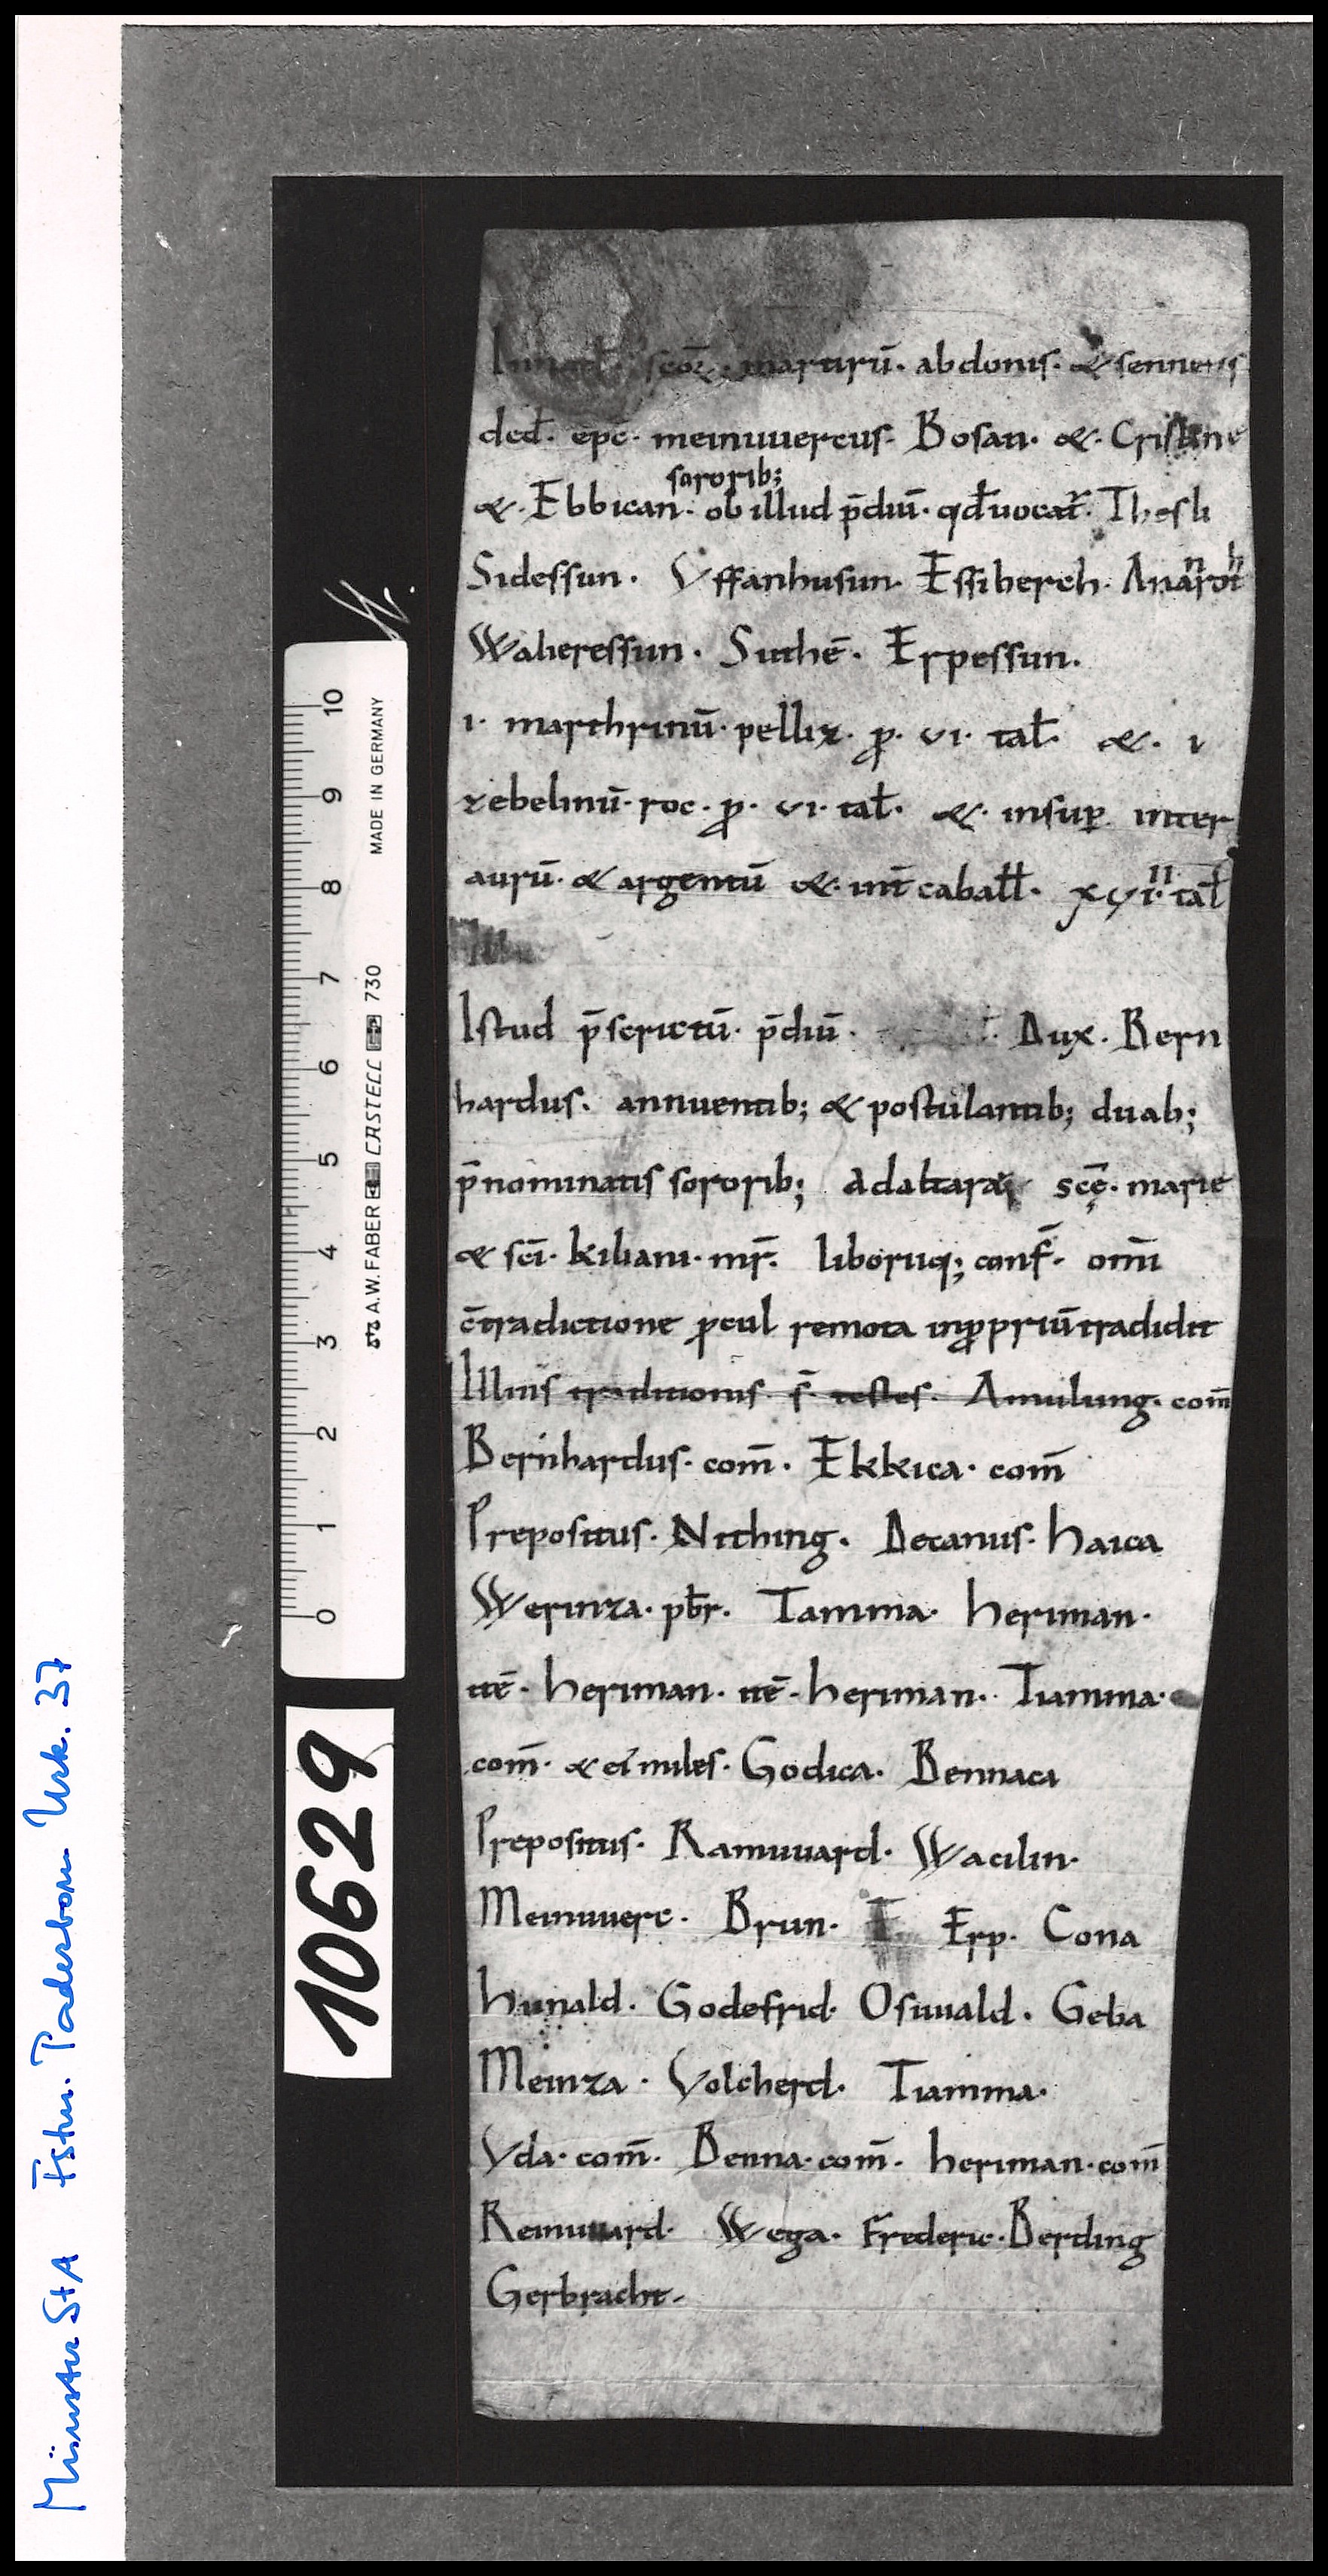 In nat̄ sc̄oꝝ. martirū. abdonis. & sennens
ded̄. ep̄c. meinuuercus. Bosan. &. Cristine
sororib;
&. Ebbican. ob illud p̄diū. qd̄ uocat̄. Thesli
Sidessun. Vffanhusun. Essibereh.
Walieressun. Suithē. Erpessun.
i. marthrinū. pellix. ꝓ. vi. tal̄. &. i
zebelinū. roc. ꝓ. vi. tal̄. &. insuꝑ inter
aurū. & argentū &. int̄ caball̄. xvi.ii tal̄
Istud p̄scriptū. p̄diū. Dux. Bern
hardus. annuentib; & postulantib; duab;
p̄nominatis sororib; ad altaria sc̄ę. marie
& sc̄i. kiliani. mr̄. liboriiq; conf̄. om̄i
c̄tradictione ꝓcul remota in ꝓpriū tradidit
Illius traditionis. s̄. testes. Amulung. com̄
Bernhardus. com̄. Ekkica. com̄
Prepositus. Nithing. Decanus. haica
Werinza. pb̄r. Tamma. heriman.
itē. heriman. itē. heriman. Tiamma.
com̄. & ei' miles. Godica. Bennaca
Prepositus. Ramuuard. Wacilin.
Meinuuerc. Brun. Erp. Cona
hunald. Godefrid. Osuuald. Geba
Meinza. Volcherd. Tiamma.
Vda. com̄. Benna. com̄. heriman. com̄
Reinuuard. Wega. Frederic. Berding
Gerbracht.
10 9 8 7 6 5 4 3 2 1 0
A.W. FABER CASTELL 730 MADE IN GERMANY
10629
Münster StA Fstm. Paderborn Urk. 37